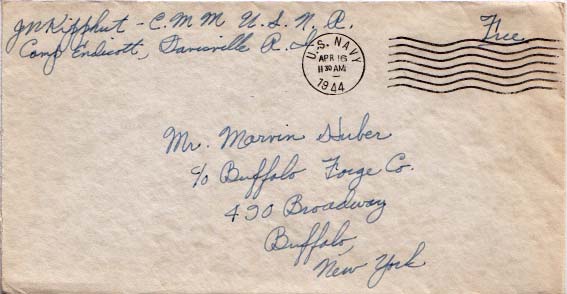 J W Kipphut - C. M. M U. S. N. R.
Camp Endicott, Davisville R. I.
Free
U.S. NAVY
APR 16
11 30 AM
1944
Mr. Marvin Huber
c/o Buffalo Forge Co.
490 Broadway
Buffalo,
New York